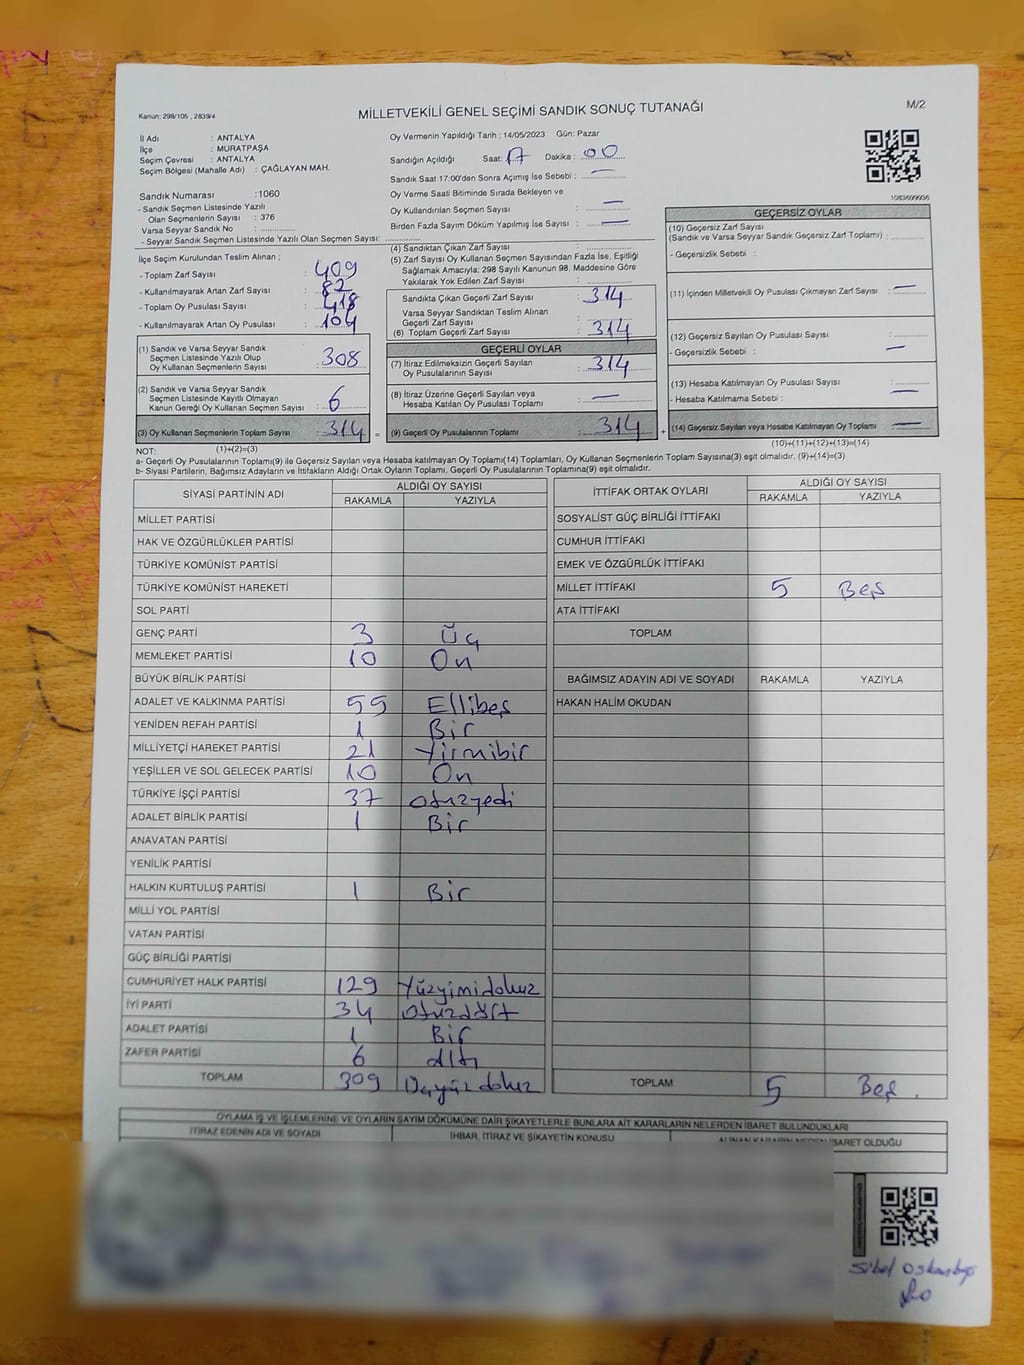 M/2
Kanun: 298/105 , 2839/4
MİLLETVEKİLİ GENEL SEÇİMİ SANDIK SONUÇ TUTANAĞI
İl Adı : ANTALYA
İlçe : MURATPAŞA
Seçim Çevresi : ANTALYA
Seçim Bölgesi (Mahalle Adı) : ÇAĞLAYAN MAH.
Sandık Numarası :1060
- Sandık Seçmen Listesinde Yazılı
Olan Seçmenlerin Sayısı : 376
Varsa Seyyar Sandık No :
- Seyyar Sandık Seçmen Listesinde Yazılı Olan Seçmen Sayısı:
Oy Vermenin Yapıldığı Tarih : 14/05/2023 Gün: Pazar
Sandığın Açıldığı Saat: 17 Dakika : 00
Sandık Saat 17:00'den Sonra Açmış İse Sebebi : —
Oy Verme Saati Bitiminde Sırada Bekleyen ve
Oy Kullandırılan Seçmen Sayısı : —
Birden Fazla Sayım Döküm Yapılmış İse Sayısı : —
1083699936
İlçe Seçim Kurulundan Teslim Alınan ;
- Toplam Zarf Sayısı : 409
- Kullanılmayarak Artan Zarf Sayısı : 82
- Toplam Oy Pusulası Sayısı : 418
- Kullanılmayarak Artan Oy Pusulası : 104
(1) Sandık ve Varsa Seyyar Sandık
Seçmen Listesinde Yazılı Olup
Oy Kullanan Seçmenlerin Sayısı : 308
(2) Sandık ve Varsa Seyyar Sandık
Seçmen Listesinde Kayıtlı Olmayan
Kanun Gereği Oy Kullanan Seçmen Sayısı : 6
(3) Oy Kullanan Seçmenlerin Toplam Sayısı : 314 =
(4) Sandıktan Çıkan Zarf Sayısı :
(5) Zarf Sayısı Oy Kullanan Seçmen Sayısından Fazla İse, Eşitliği
Sağlamak Amacıyla; 298 Sayılı Kanunun 98. Maddesine Göre
Yakılarak Yok Edilen Zarf Sayısı :
Sandıkta Çıkan Geçerli Zarf Sayısı : 314
Varsa Seyyar Sandıktan Teslim Alınan
Geçerli Zarf Sayısı :
(6) Toplam Geçerli Zarf Sayısı : 314
GEÇERLİ OYLAR
(7) İtiraz Edilmeksizin Geçerli Sayılan
Oy Pusulalarının Sayısı : 314
(8) İtiraz Üzerine Geçerli Sayılan veya
Hesaba Katılan Oy Pusulası Toplamı : —
(9) Geçerli Oy Pusulalarının Toplamı : 314 +
GEÇERSİZ OYLAR
(10) Geçersiz Zarf Sayısı
(Sandık ve Varsa Seyyar Sandık Geçersiz Zarf Toplamı) :
- Geçersizlik Sebebi :
(11) İçinden Milletvekili Oy Pusulası Çıkmayan Zarf Sayısı : —
(12) Geçersiz Sayılan Oy Pusulası Sayısı :
- Geçersizlik Sebebi : —
(13) Hesaba Katılmayan Oy Pusulası Sayısı :
- Hesaba Katılmama Sebebi : —
(14) Geçersiz Sayılan veya Hesaba Katılmayan Oy Toplamı : —
NOT: (1)+(2)=(3) (10)+(11)+(12)+(13)=(14)
a- Geçerli Oy Pusulalarının Toplamı(9) ile Geçersiz Sayılan veya Hesaba katılmayan Oy Toplamı(14) Toplamları, Oy Kullanan Seçmenlerin Toplam Sayısına(3) eşit olmalıdır. (9)+(14)=(3)
b- Siyasi Partilerin, Bağımsız Adayların ve İttifakların Aldığı Ortak Oyların Toplamı, Geçerli Oy Pusulalarının Toplamına(9) eşit olmalıdır.
SİYASİ PARTİNİN ADI ALDIĞI OY SAYISI
RAKAMLA YAZIYLA
MİLLET PARTİSİ
HAK VE ÖZGÜRLÜKLER PARTİSİ
TÜRKİYE KOMÜNİST PARTİSİ
TÜRKİYE KOMÜNİST HAREKETİ
SOL PARTİ
GENÇ PARTİ 3 Üç
MEMLEKET PARTİSİ 10 On
BÜYÜK BİRLİK PARTİSİ
ADALET VE KALKINMA PARTİSİ 55 Ellibeş
YENİDEN REFAH PARTİSİ 1 Bir
MİLLİYETÇİ HAREKET PARTİSİ 21 Yirmibir
YEŞİLLER VE SOL GELECEK PARTİSİ 10 On
TÜRKİYE İŞÇİ PARTİSİ 37 otuzyedi
ADALET BİRLİK PARTİSİ 1 Bir
ANAVATAN PARTİSİ
YENİLİK PARTİSİ
HALKIN KURTULUŞ PARTİSİ 1 Bir
MİLLİ YOL PARTİSİ
VATAN PARTİSİ
GÜÇ BİRLİĞİ PARTİSİ
CUMHURİYET HALK PARTİSİ 129 Yüzyimidokuz
İYİ PARTİ 34 otuzdört
ADALET PARTİSİ 1 Bir
ZAFER PARTİSİ 6 altı
TOPLAM 309 Üçyüzdokuz
İTTİFAK ORTAK OYLARI ALDIĞI OY SAYISI
RAKAMLA YAZIYLA
SOSYALİST GÜÇ BİRLİĞİ İTTİFAKI
CUMHUR İTTİFAKI
EMEK VE ÖZGÜRLÜK İTTİFAKI
MİLLET İTTİFAKI 5 Beş
ATA İTTİFAKI
TOPLAM
BAĞIMSIZ ADAYIN ADI VE SOYADI RAKAMLA YAZIYLA
HAKAN HALİM OKUDAN
TOPLAM 5 Beş
OYLAMA İŞ VE İŞLEMLERİNE VE OYLARIN SAYIM DÖKÜMÜNE DAİR ŞİKAYETLERLE BUNLARA AİT KARARLARIN NELERDEN İBARET BULUNDUKLARI
İTİRAZ EDENİN ADI VE SOYADI İHBAR, İTİRAZ VE ŞİKAYETİN KONUSU ALINAN KARARIN NEDEN İBARET OLDUĞU
Sibel